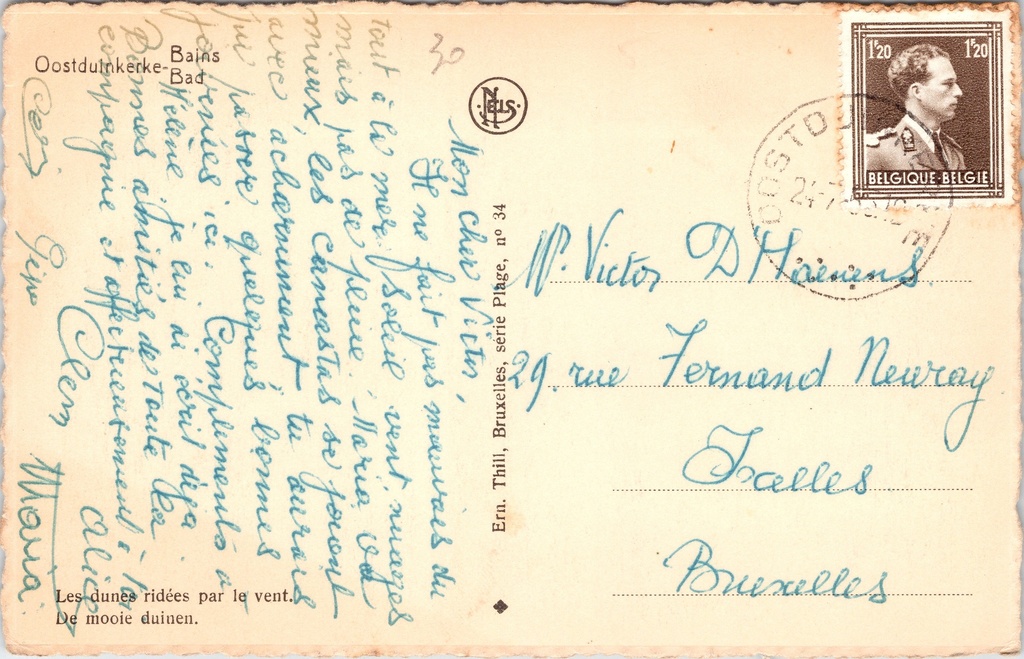 Oostduinkerke-
Bains
Bad
30
Nels
Mon cher Victor,
Il ne fait pas mauvais du
tout à la mer, soleil vent nuages
mais pas de pluie. Maria va
mieux, les canastas se jouent
avec acharnement tu aurais
pu passer quelques bonnes
journées ici. Compliments à
Hélène je lui ai écrit déjà.
Bonnes amitiés de toute la
compagnie et affectueusement à toi
Clem
Alice
Maria
Ern. Thill, Bruxelles, série Plage, n° 34
1F20
1F20
BELGIQUE-BELGIE
OOSTD
24-7
Mr. Victor D'Haenens
29. rue Fernand Neuray
Ixelles
Bruxelles
Les dunes ridées par le vent.
De mooie duinen.